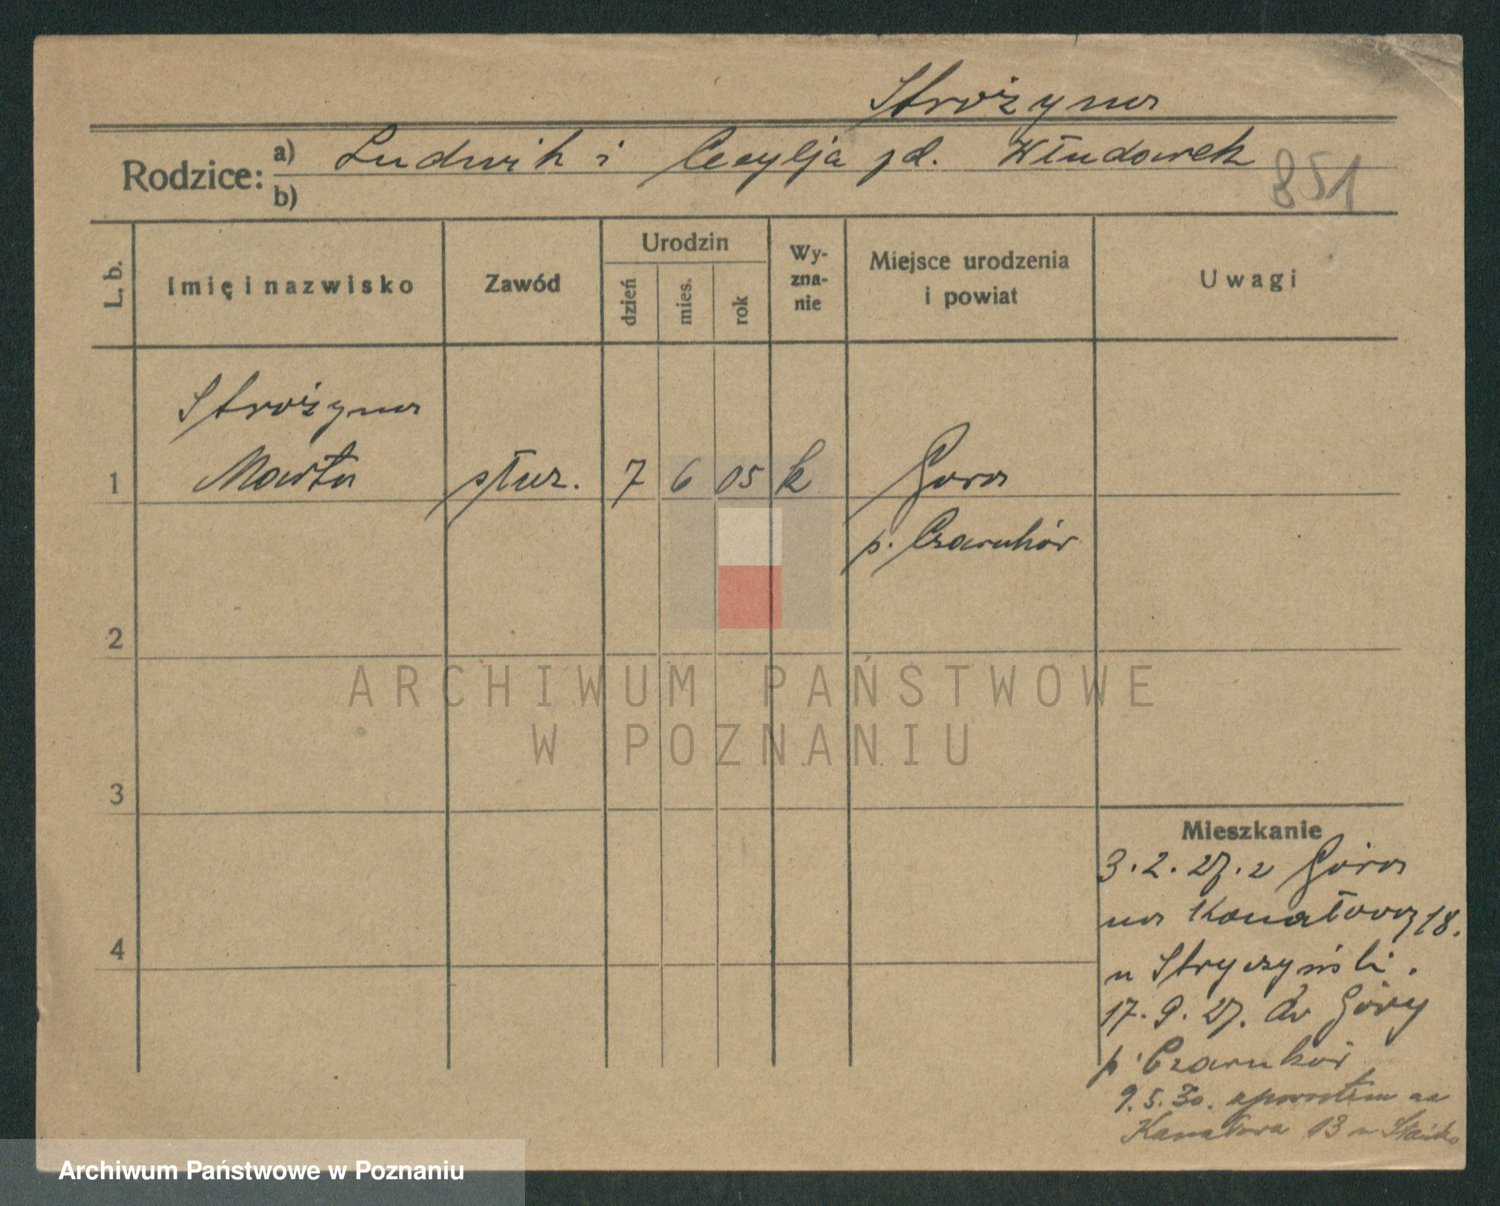 Strożyna
Rodzice: a) Ludwik i Cecylja zd. Kłudowek
b)
851
L. b.
Imię i nazwisko
Zawód
Urodzin
dzień
mies.
rok
Wy-
zna-
nie
Miejsce urodzenia
i powiat
Uwagi
Strożyna
1 Marta służ. 7 6 05 k Gora
p. Czarnków
2
3
4
Mieszkanie
3.2.27. z Góra
na Kanałową 18.
u Stryczyński.
17.9.27. do Góry
p. Czarnków
9.5.30. zpowrotem na
Kanałowa 13 u
ARCHIWUM PAŃSTWOWE
W POZNANIU
Archiwum Państwowe w Poznaniu